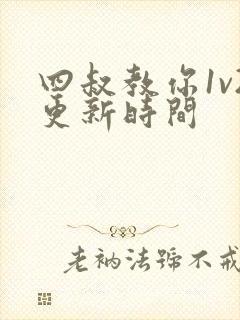 四叔教你1v2
更新時間
老衲法號不戒